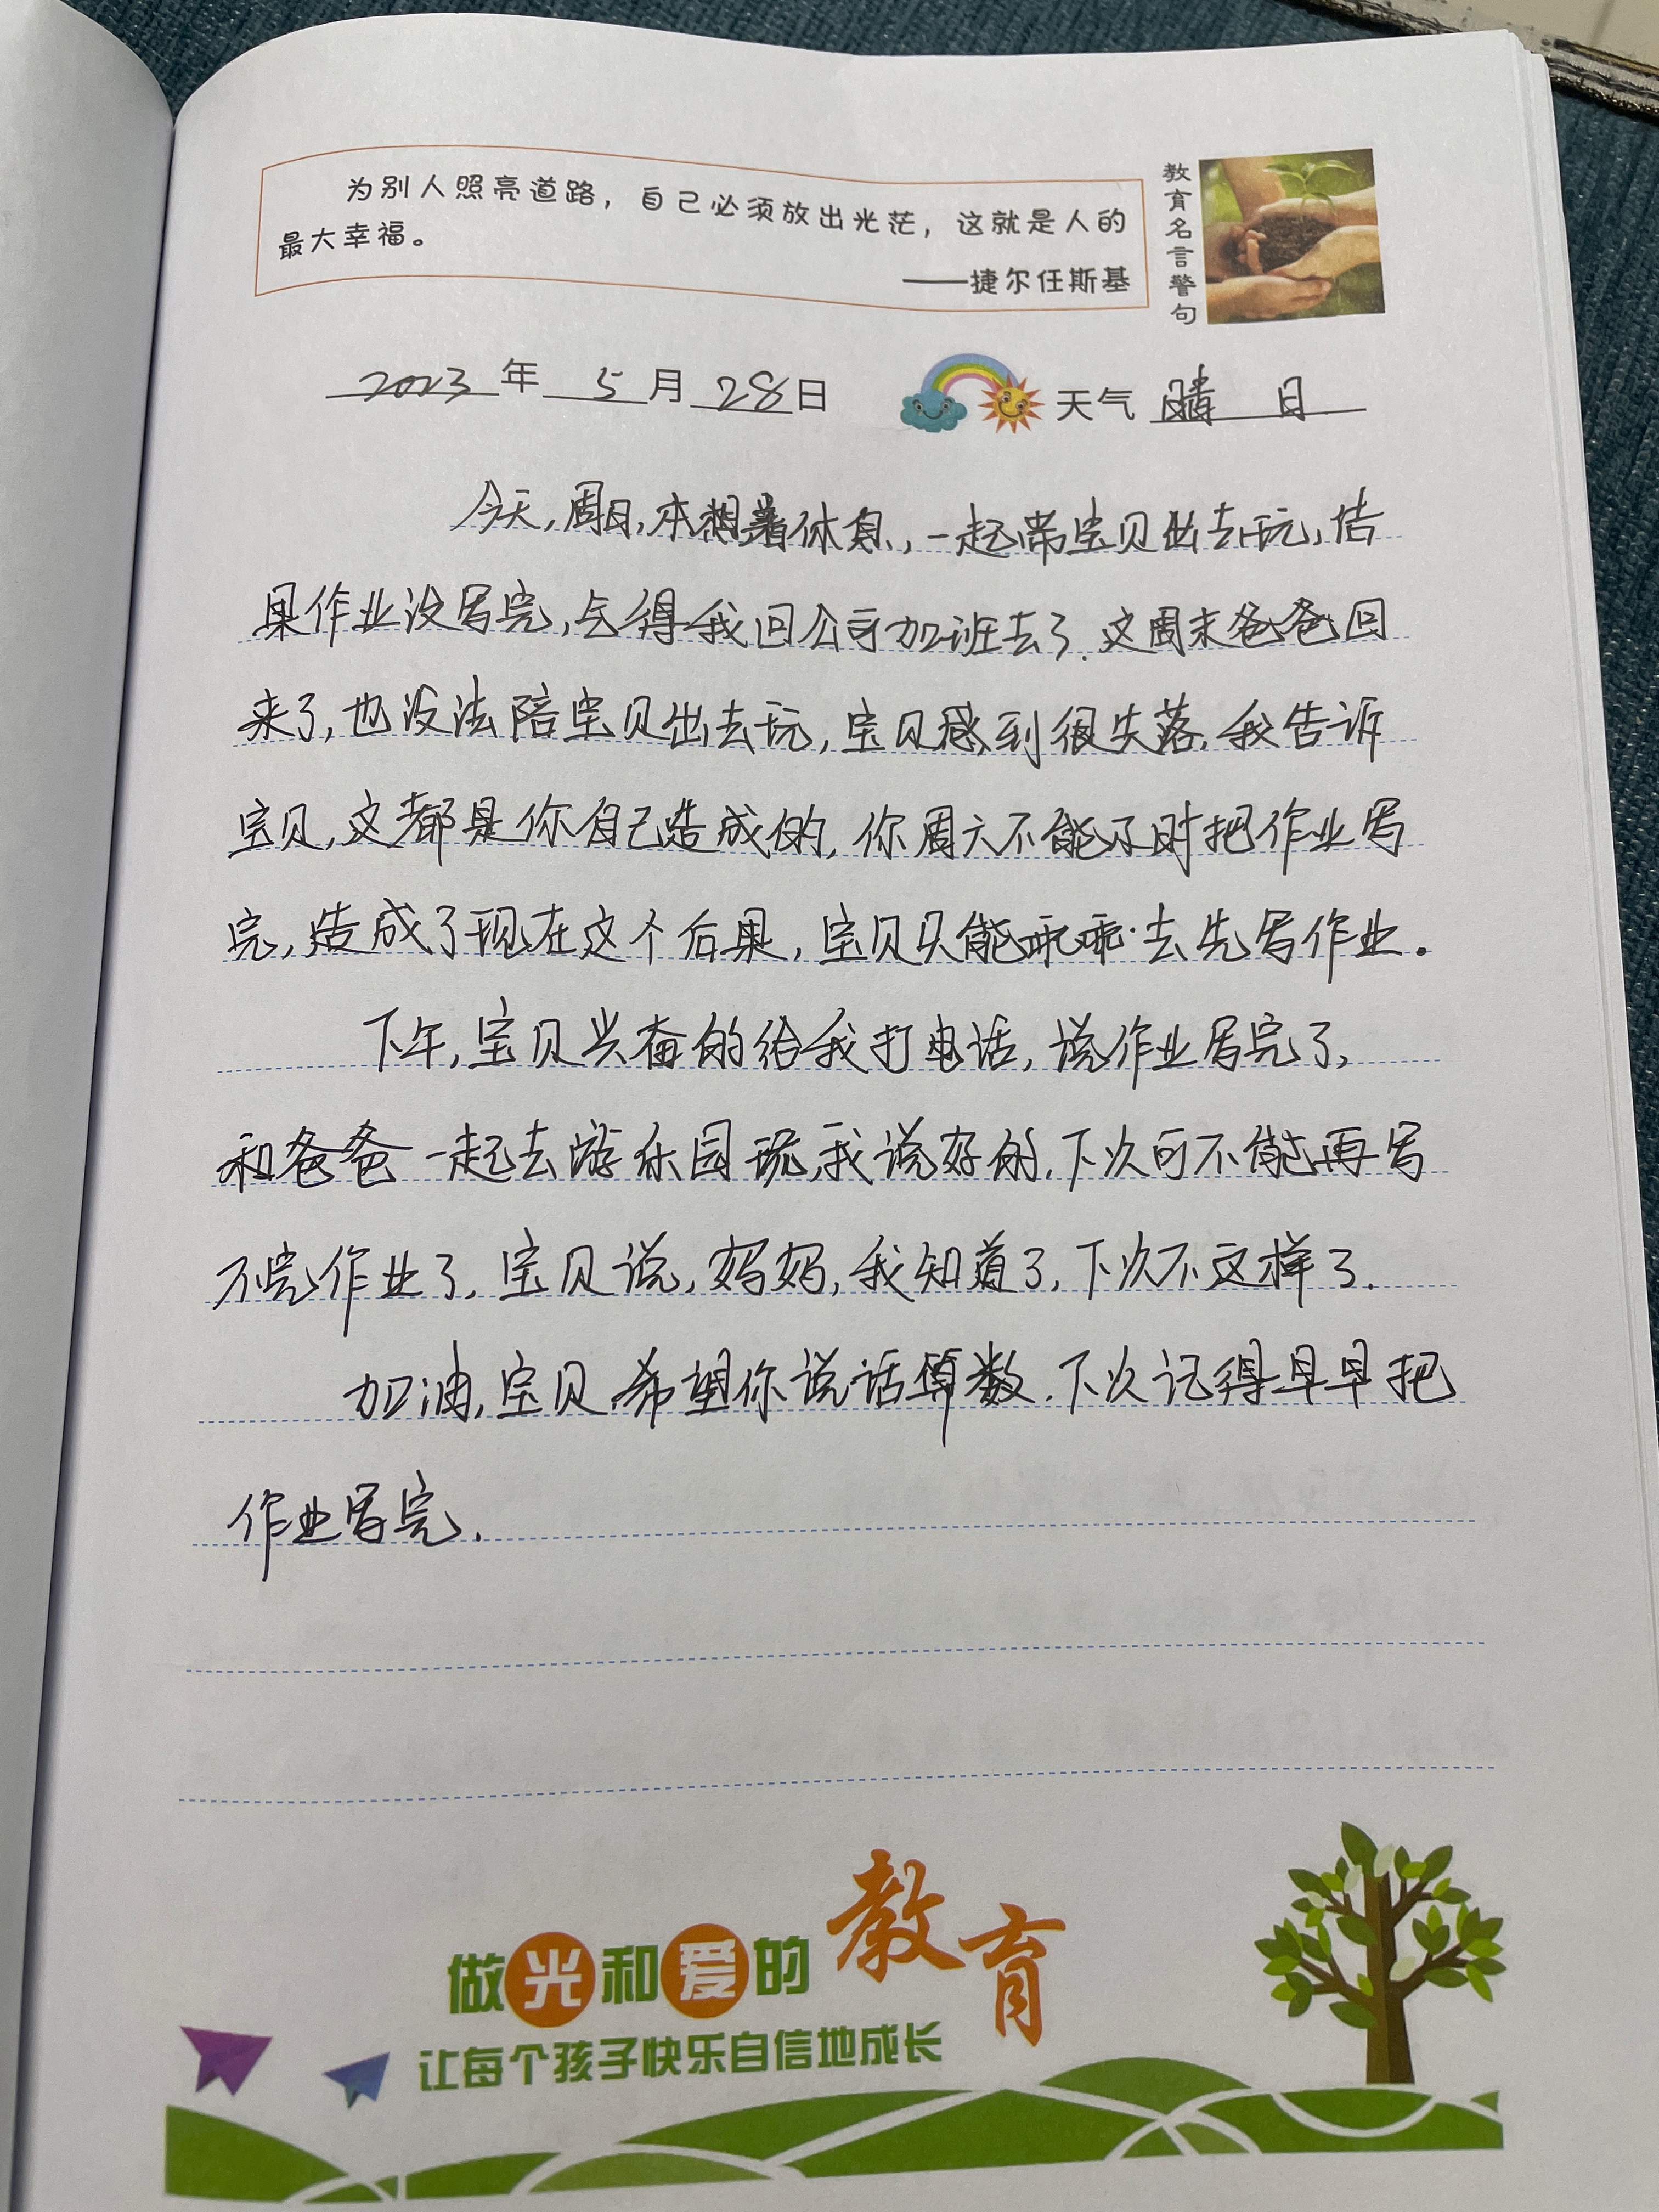 为别人照亮道路，自己必须放出光茫，这就是人的
最大幸福。
——捷尔任斯基
教育名言警句
2023年 5月 28日 天气 晴 日
今天,周日,本想着休息,一起带宝贝出去玩,结
果作业没写完,气得我回公司加班去了.这周末爸爸回
来了,也没法陪宝贝出去玩,宝贝感到很失落,我告诉
宝贝,这都是你自己造成的,你周六不能及时把作业写
完,造成了现在这个后果,宝贝只能乖乖去先写作业。
下午,宝贝兴奋的给我打电话,说作业写完了,
和爸爸一起去游乐园玩,我说好的,下次可不能再写
不完作业了,宝贝说,妈妈,我知道了,下次不这样了.
加油,宝贝,希望你说话算数.下次记得早早把
作业写完.
做光和爱的教育
让每个孩子快乐自信地成长